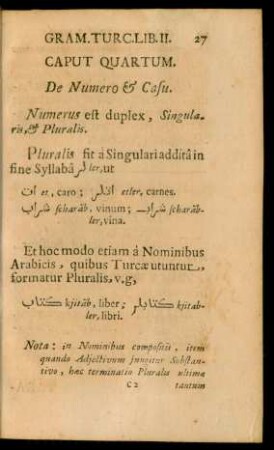 GRAM. TURC. LIB. II. 27
CAPUT QUARTUM.
De Numero & Casu.
Numerus est duplex, Singula-
ris, & Pluralis.
Pluralis fit á Singulari additâ in
fine Syllabâ لر ler, ut
ات et, caro; اتلر etler, carnes.
شراب scharâb, vinum; شرابلر scharâb-
ler, vina.
Et hoc modo etiam á Nominibus
Arabicis, quibus Turcæ utuntur,
formatur Pluralis, v.g,
كتاب kjitâb, liber; كتابلر kjitab-
ler, libri.
Nota: in Nominibus compositis, item
quando Adjectivum jungitur Substan-
tivo, hæc terminatio Pluralis ultimæ
C 2 tantum